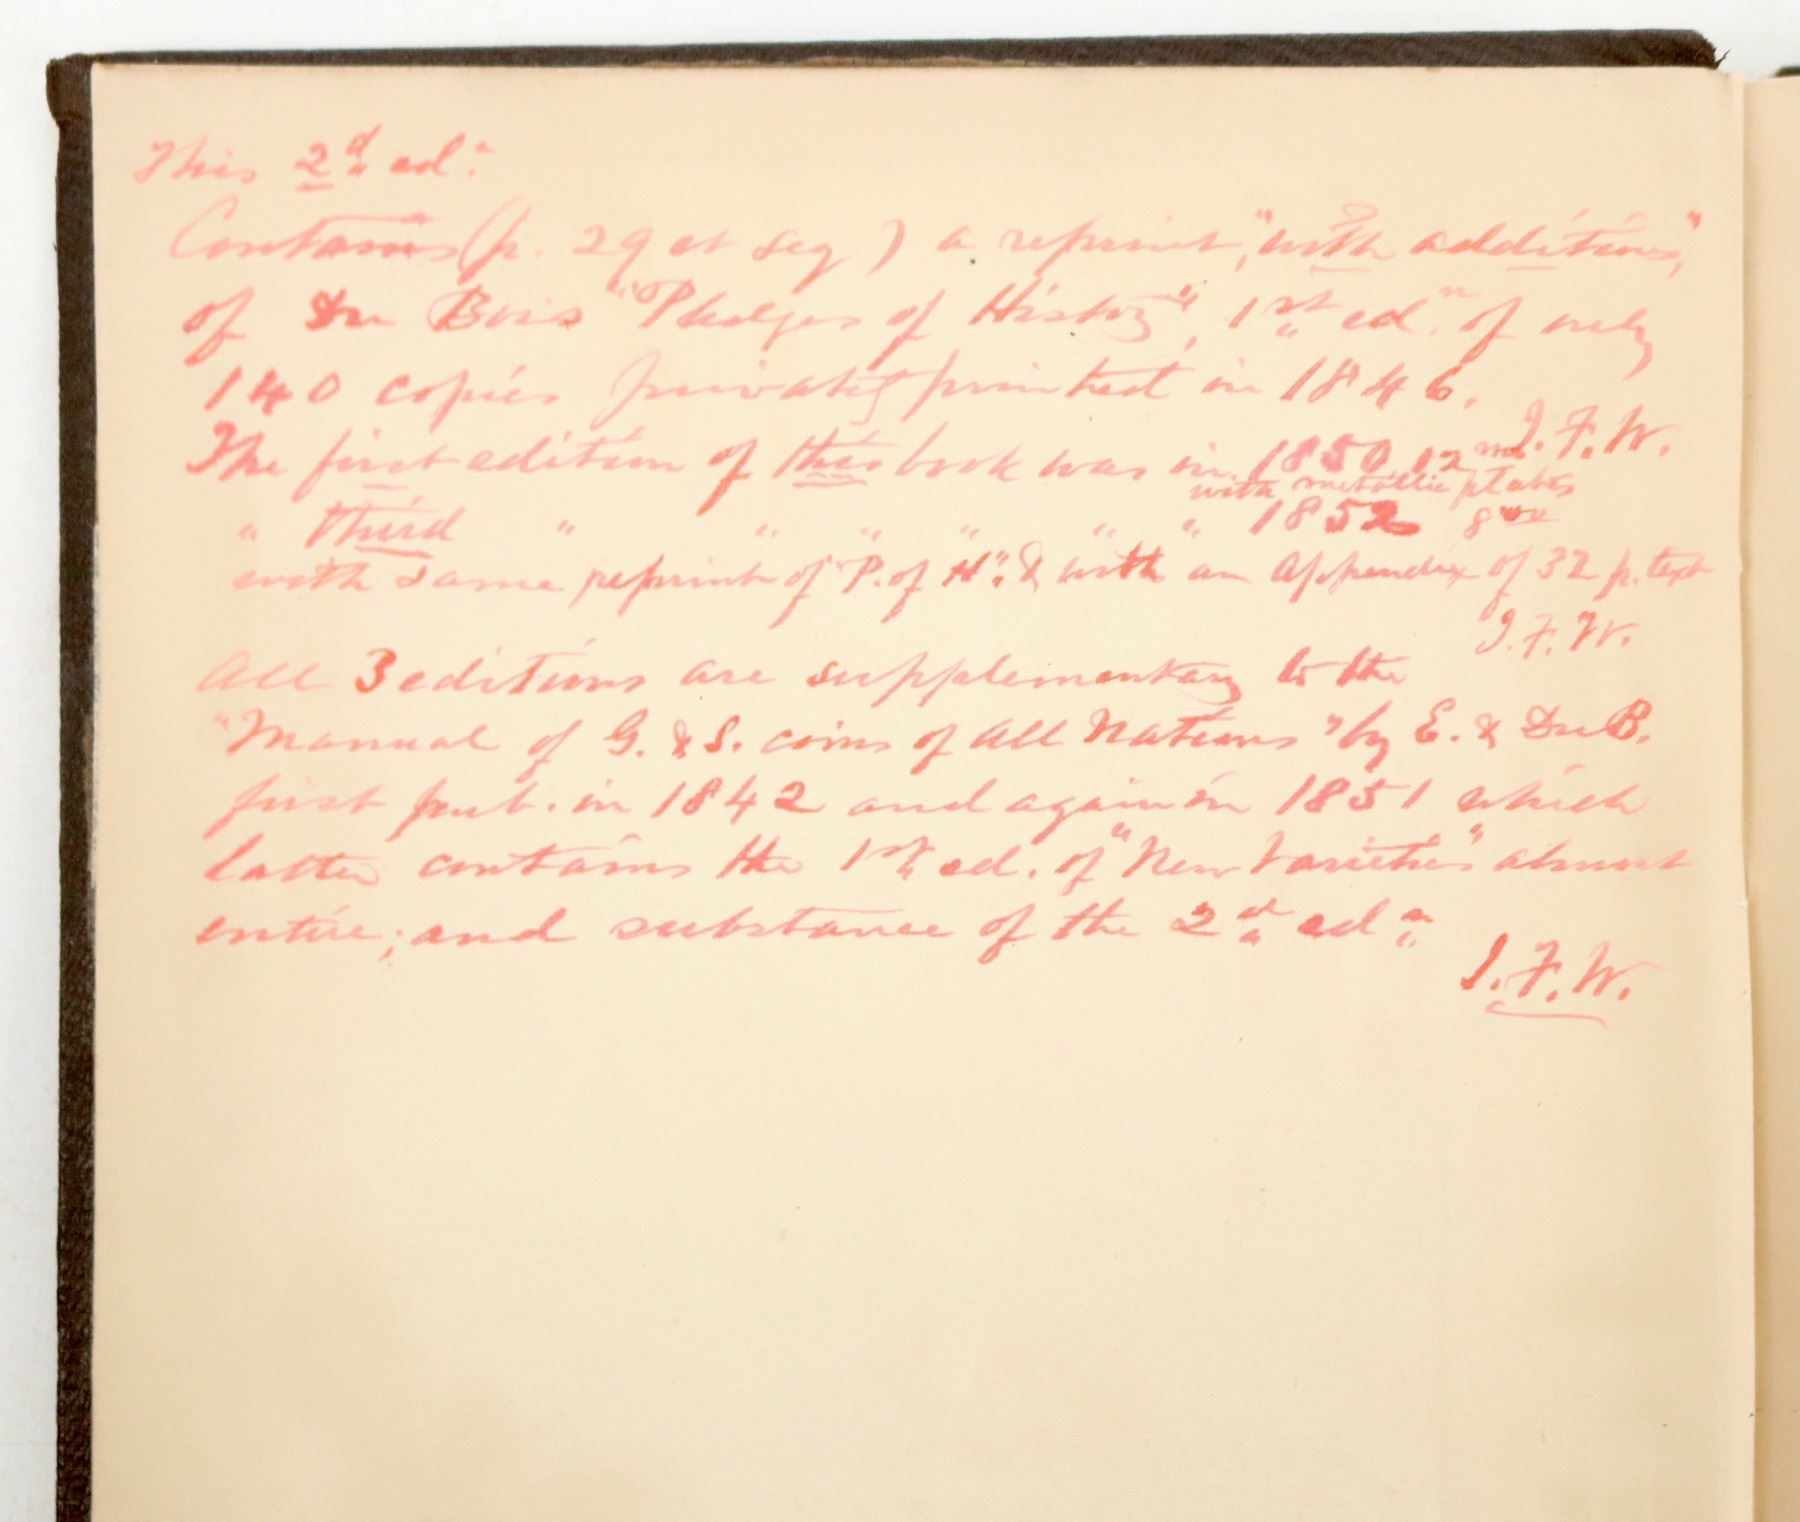 This 2d edn
Contains (p. 29 et seq) a reprint, "with additions,"
of Du Bois "Pledges of History", 1st edn of only
140 copies privately printed in 1846.
J. F. W.
The first edition of this book was in 1850 12mo
with metallic plates
" third " " " " " " 1852 8vo
with same reprint of "P. of H". & with an Appendix of 32 p. text
J. F. W.
All 3 editions are supplementary to the
"Manual of G. & S. coins of All Nations" by E. & Du B.
first pub. in 1842 and again in 1851 which
latter contains the 1st ed. of "New Varieties" almost
entire; and substance of the 2d edn
J. F. W.